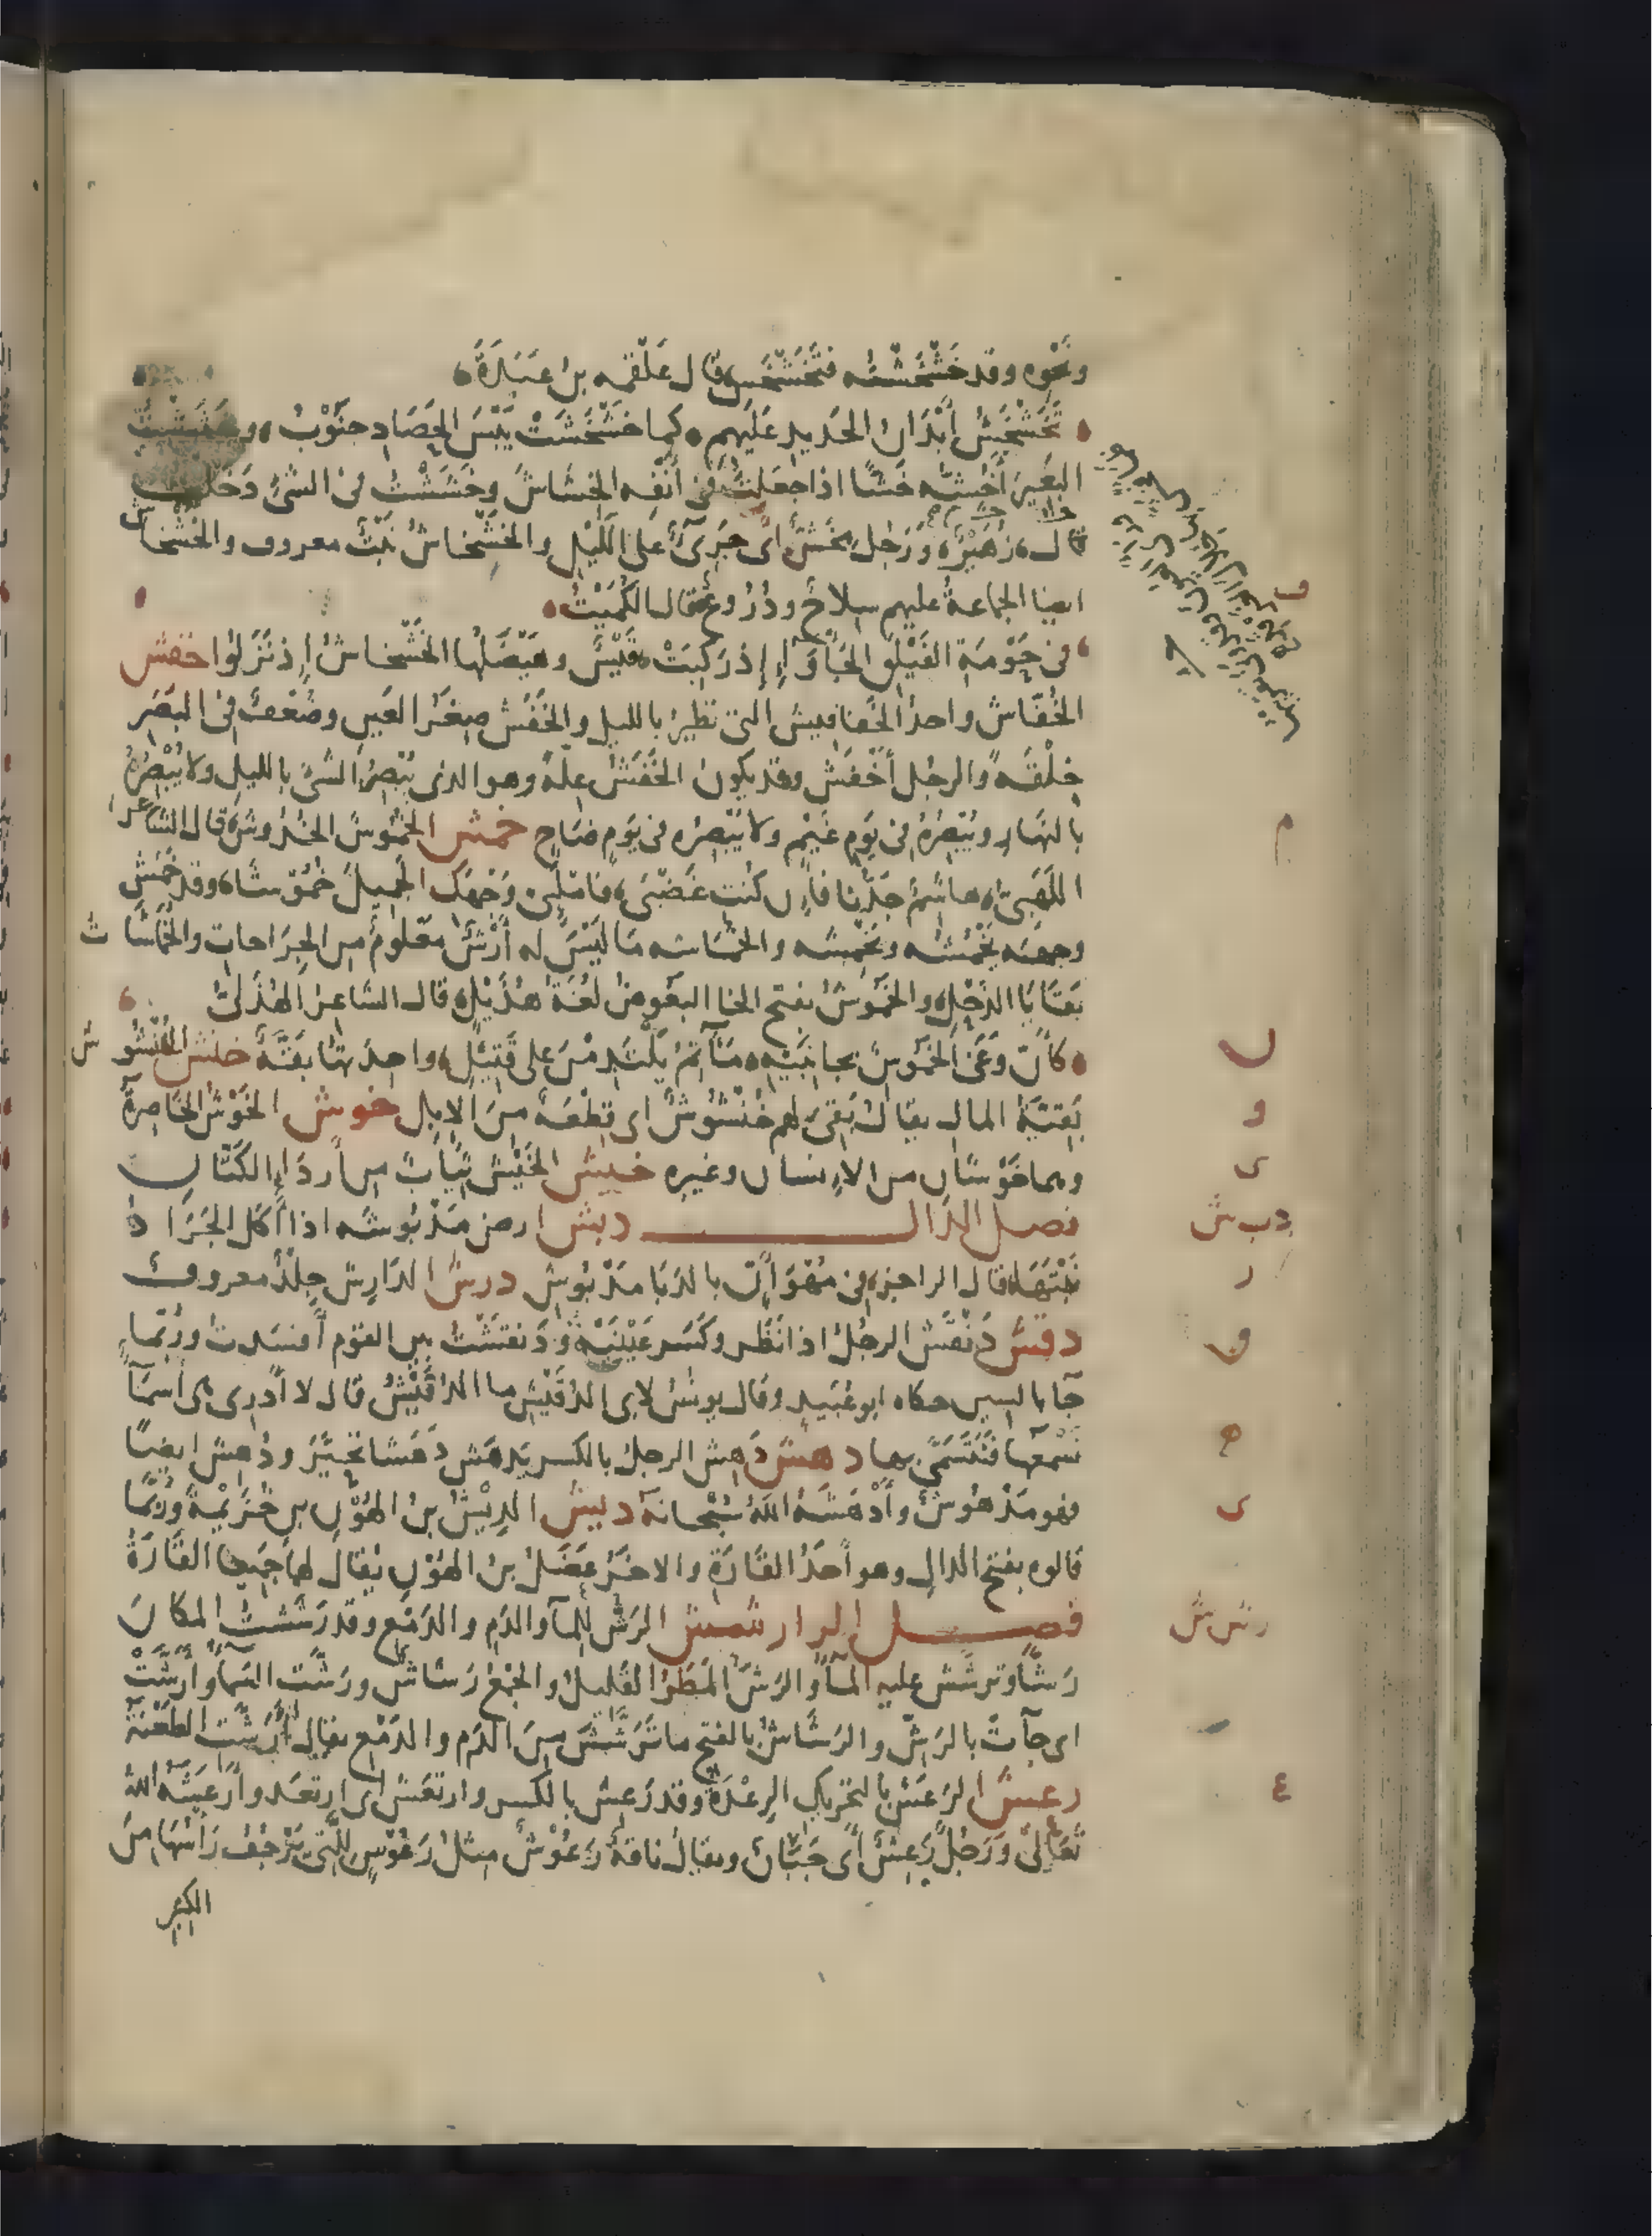 ونحوه وقد خَشْخَشْتُه فتَخَشْخَش، قال عَلْقمه بن عَبَدَةَ،
تَخَشْخَشُ أَبْدَانُ الحَديدِ عَليهم، كما خَشْخَشَتْ يَبْسَ الحَصَادِ جنَوْبُ، وخَشَشْتُ
البَعِيرَ أَخُشّه خَشًّا اذا جَعَلتُ فى أَنْفِه الخِشَاشَ وخَشَشْتُ فى الشىءِ دَخلتُ
قال زُهَيْرٌ، ورَجُل مِخَشّ أى جَرىءٌ على اللَّيْلِ والخَشْخاشُ نَبْتٌ معروف والخَشْخاش
ايضا الجماعةُ عليهم سِلاحٌ ودُرُوعٌ قال الكُمَيْتُ،
فى حَوْمَةِ الفَيْلَقِ الجَأْوَآءِ إِذ رَكِبَتْ قَيْسٌ وهَيْضَلُها الخَشْخاشُ إِذ نَزَلُوا خفش
الخُفّاش واحدُ الخَفافيش التى تطيرُ بالليل والخَفَش صِغَرُ العَينِ وضُعْفٌ فى البَصَر
خِلْقَةً والرجُل أَخْفَش وقد يكونُ الخَفَشُ عِلّةً وهو الذى يُبْصِرُ الشىءَ بالليل ولا يُبْصِرُهُ
بالنهَارِ ويُبْصِرُهُ فى يَوم غَيْمٍ ولا يُبْصِرُه فى يَومٍ صَاحٍ خمش الخُمُوشُ الخُدُوشُ، قال الشاعر
اللَهَبىّ، هاشمٌ جَدُّنا فإِن كُنتِ غَضْبَى، فامْلَئِى وَجْهَكِ الجَميلَ خُمُوشَا، وقد خَمَشَ
وجهَه يَخْمُشُه ويَخْمِشه والخُمَاشه مَا لَيْسَ له أَرْشٌ مَعْلومٌ من الجِرَاحات والخُمَاشَاتُ
بَقَايَا الذَحْلِ، والخَمُوشُ بفتح الخا البَعُوضُ لغةُ هُذَيْل، قال الشاعرُ الهُذَلىُّ
كأنّ وَغَى الخَمُوش بجانِبَيْهِ، مَآتمُ يَلْتَدِمْنَ على قَتِيلِ، واحِدَتها بَقّةٌ خنش الخُنْشُوش
بَقيّةُ المال يقالُ بَقِىَ لهم خُنْشُوشٌ اى قِطْعَةٌ مِنَ الابِل خوش الخَوْشُ الخَاصِرةُ
وهما خَوْشانِ من الانسان وغيره خيش الخَيْش ثِيَابٌ من أَردَإِ الكَتّانِ
فصل الدال دبش ارض مَدْبُوشه اذا أكَلَ الجَرَادُ
نَبْتَهَا، قال الراجز، فى مُهْوَأَنٍّ بالدَبَا مَدْبُوشِ درش الدَارِش جِلْدٌ معروف
دقش دَنْقَش الرجُلُ اذا نَظَر وكَسَر عَيْنَيْهِ ودَنقَشْتُ بين القوم أَفسَدتُ ورُبّما
جآ بالسين حكاه ابو عُبَيدٍ وقال يونسُ لابى الدُقَيْش ما الدُقَيْشُ قال لا أَدرِى هى أَسْمَآٌ
نَسْمَعها فَنَتَسَمَّى بها دهش دَهِش الرجلُ بالكسر يَدهَش دَهَشا تحيَّرَ ودُهِش ايضًا
فهو مَدْهُوشٌ وأَدْهَشَهُ اللهُ سُبْحانَه ديش الدِيْشُ بنُ الهُوْنِ بنِ خُزَيْمةَ ورُبّما
قالوه بفتح الدالِ وهو أَحَدُ القَارَةِ والاخَرُ عَضَلُ بنُ الهُوْنِ يُقالُ لهما جَميعا القَارَةُ
فصل الرا رشش الرَشّ للمآ والدَمِ والدَمْع وقد رَشَشتُ المكانَ
رَشًّا وترشَّش عليهِ المآُ والرَشّ المَطَرُ القَليلُ والجَمْعُ رَشاشٌ ورَشَّتِ السَمآُ وأَرَشَّتْ
اى جآتْ بالرَشّ والرَشَاشُ بالفتح ما تَرَشَّشَ مِنَ الدَمِ والدَمْعِ يقال أَرَشّتِ الطَعْنَةُ
رعش الرَعَشُ بالتحريك الرِعْدَةُ وقد رَعِشَ بالكسر وارتَعَشَ اى ارتعَد وأَرعَشَه اللهُ
تعَالى ورَجُلٌ رَعِشٌ أى جَبَانٌ ويقالُ ناقةٌ رَعُوْشٌ مِثلُ رَعُوْسٍ للتى يَرْجُف رَأسُهَا مِنَ
الكِبَرِ
ف
م
ن
و
ى
دب ش
ر
ق
ه
ى
رش ش
ع